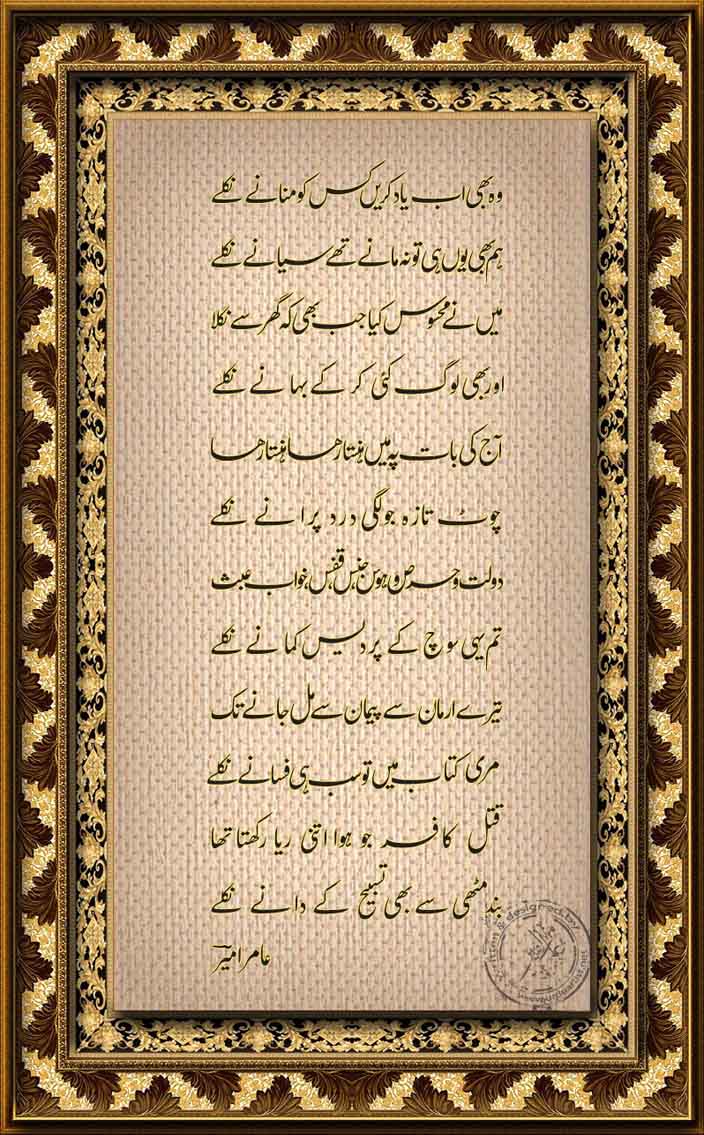 وہ بھی اب یاد کریں کس کو منانے نکلے
ہم بھی یوں ہی تو نہ مانے تھے سیانے نکلے
میں نے محسوس کیا جب بھی کہ گھر سے نکلا
اور بھی لوگ کئی کر کے بہانے نکلے
آج کی بات پہ میں ہنستا رھا ہنستا رھا
چوٹ تازہ جو لگی درد پرانے نکلے
دولت و حرص و ہوس جنس قفس خواب عبث
تم یہی سوچ کے پردیس کمانے نکلے
تیرے ارمان سے پیمان سے مل جانے تک
مری کتاب میں تو سب ہی فسانے نکلے
قتل کافر جو ہوا اتنی ریا رکھتا تھا
بند مٹھی سے بھی تسبیح کے دانے نکلے
عامر امیر
designed by